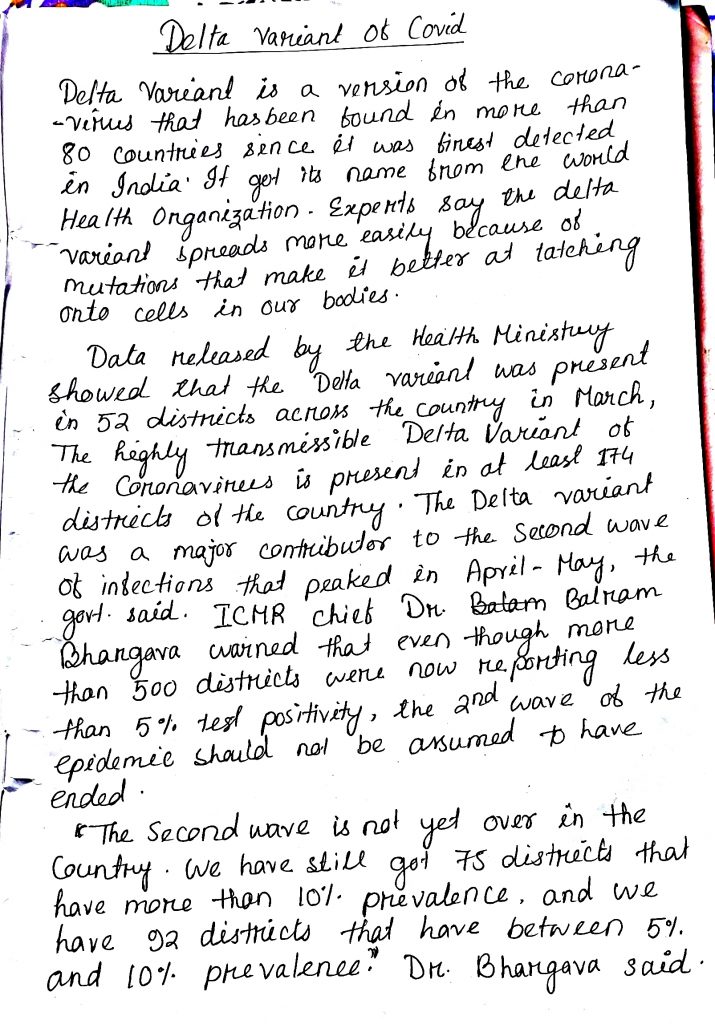 Delta Variant of Covid
Delta Variant is a version of the corona-
-virus that hasbeen found in more than
80 countries since it was first detected
in India. It get its name from the world
Health Organization. Experts say the delta
variant spreads more easily because of
mutations that make it better at latching
onto cells in our bodies.
Data released by the Health Ministry
showed that the Delta variant was present
in 52 districts across the country in March,
The highly transmissible Delta Variant of
the Coronavirus is present in at least 174
districts of the country. The Delta variant
was a major contributor to the Second wave
of infections that peaked in April - May, the
govt. said. ICMR chief Dr. Balam Balram
Bhargava warned that even though more
than 500 districts were now reporting less
than 5% test positivity, the 2nd wave of the
epidemic should not be assumed to have
ended.
"The Second wave is not yet over in the
Country. We have still got 75 districts that
have more than 10% prevalence, and we
have 92 districts that have between 5%
and 10% prevalence." Dr. Bhargava said.